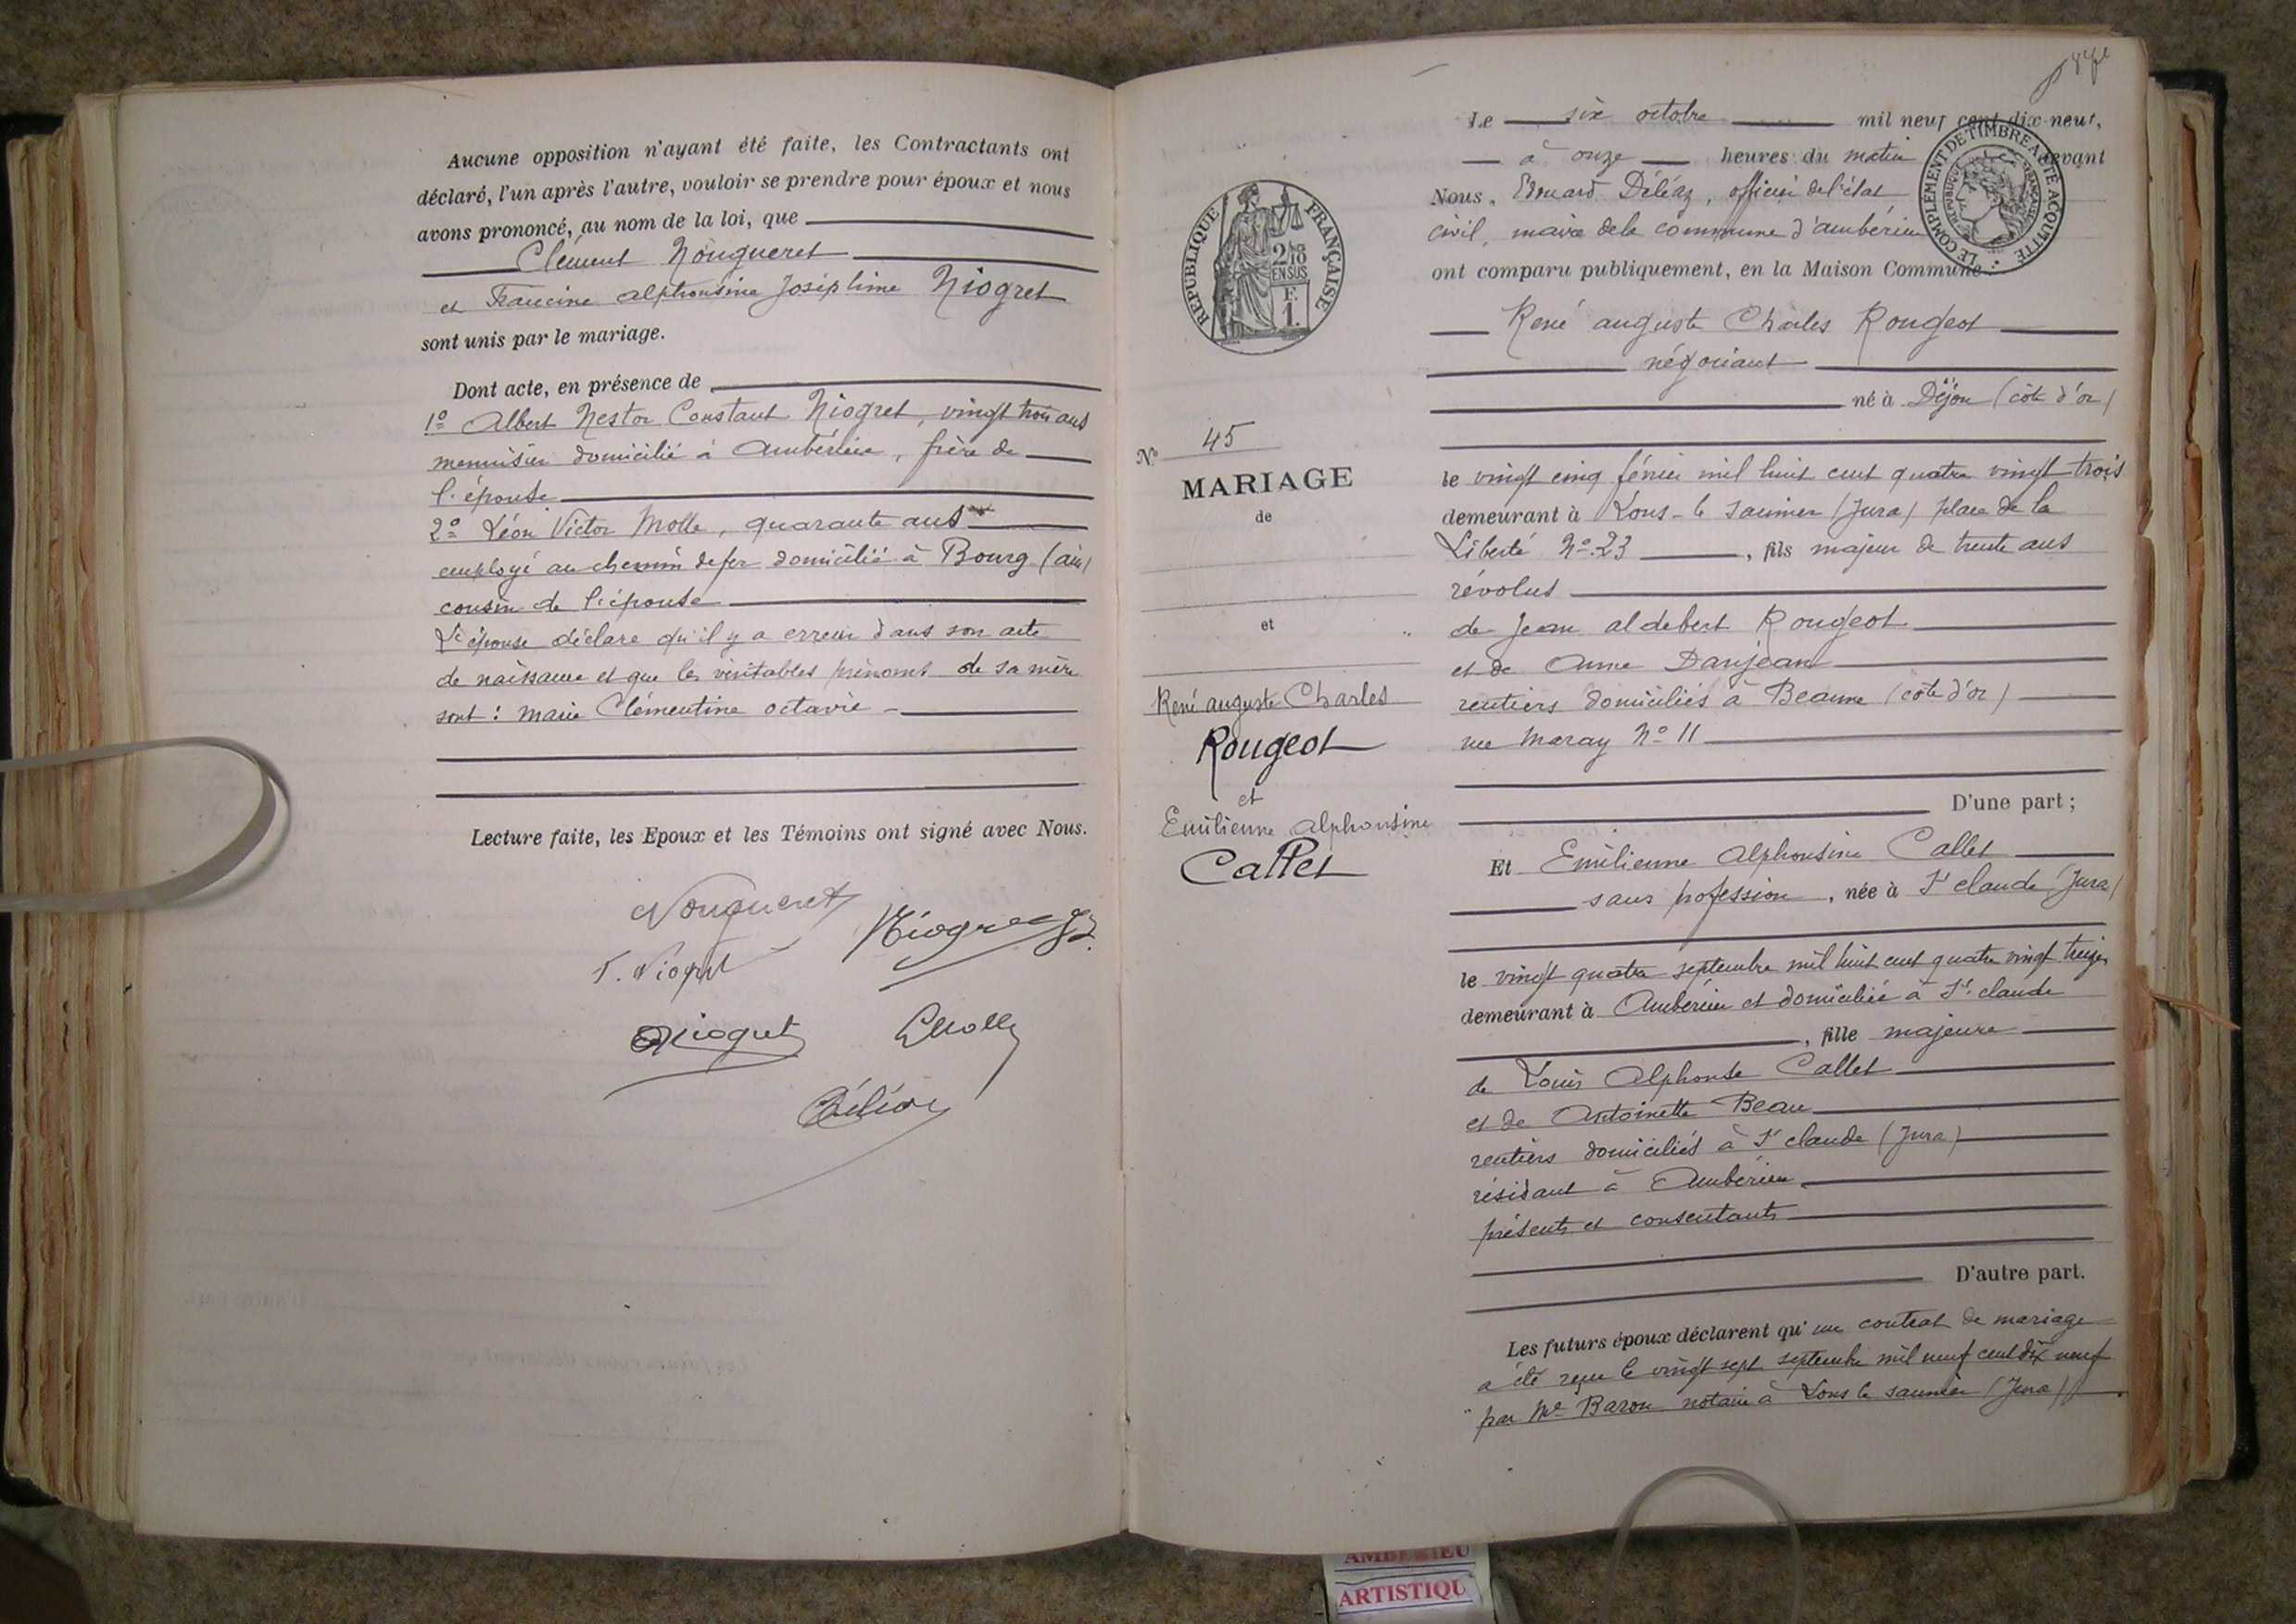 Aucune opposition n'ayant été faite, les Contractants ont
déclaré, l'un après l'autre, vouloir se prendre pour époux et nous
avons prononcé, au nom de la loi, que
Clément Nougueret
et Francine alphonsine Joséphine Niogret
sont unis par le mariage.
Dont acte, en présence de
1º Albert Nestor Constant Niogret, vingt trois ans
menuisier domicilié à Ambérieu, frère de
l'épouse
2º Léon Victor Molle, quarante ans
employé au chemin de fer domicilié à Bourg (ain)
cousin de l'épouse
L'épouse déclare qu'il y a erreur dans son acte
de naissance et que les véritables prénoms de sa mère
sont : marie Clémentine octavie
Lecture faite, les Epoux et les Témoins ont signé avec Nous.
Nougueret
Niogret
F. Niogret
Niogret
LMolle
REPUBLIQUE FRANÇAISE
2/10
EN SUS
F.
1.
Nº 45
MARIAGE
de
et
René auguste Charles
Rougeot
et
Emilienne alphonsine
Callet
Le six octobre mil neuf cent dix-neuf,
à onze heures du matin devant
LE COMPLEMENT DE TIMBRE A ETE ACQUITTE
Nous, Edouard Déléaz, officier de l'état
civil, maire de la commune d'ambérieu
ont comparu publiquement, en la Maison Commune :
René auguste Charles Rougeot
négociant
né à Dijon (côte d'or)
le vingt cinq février mil huit cent quatre vingt trois
demeurant à Lons-le Saunier (Jura) place de la
Liberté Nº 23, fils majeur de trente ans
révolus
de Jean aldebert Rougeot
et de Anne Danjean
rentiers domiciliés à Beaune (côte d'or)
rue Maray Nº 11
D'une part ;
Et Emilienne Alphonsine Callet
sans profession, née à St claude (Jura)
le vingt quatre septembre mil huit cent quatre vingt treize
demeurant à Ambérieu et domiciliée à St. claude
, fille majeure
de Louis Alphonse Callet
et de Antoinette Beau
rentiers domiciliés à St claude (Jura)
résidant à Ambérieu
présents et consentants
D'autre part.
Les futurs époux déclarent qu'un contrat de mariage
a été reçu le vingt sept septembre mil neuf cent dix neuf
par Me Baron notaire à Lons le saunier (Jura)
AMBERIEU
ARTISTIQU